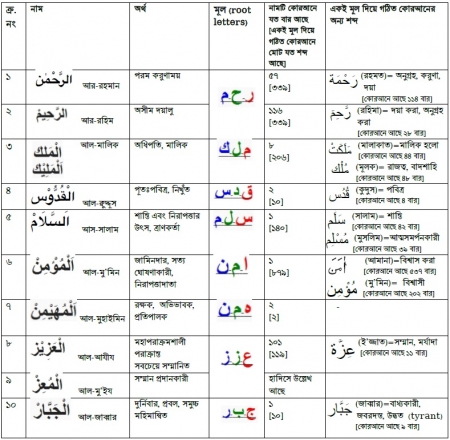 ক্র.
নং
নাম
অর্থ
মূল (root
letters)
নামটি কোরআনে
যত বার আছে
[একই মূল দিয়ে
গঠিত কোরআনে
মোট যত শব্দ
আছে]
একই মূল দিয়ে গঠিত কোরআনের
অন্য শব্দ
১
الرَّحْمٰنُ
আর-রহমান
পরম করুণাময়
ر ح م
৫৭
[৩৩৯]
رَحْمَة (রহমত)= অনুগ্রহ, করুণা,
দয়া
[কোরআনে আছে ১১৪ বার]
২
الرَّحِيْمُ
আর-রহিম
অসীম দয়ালু
১১৬
[৩৩৯]
رَحِمَ (রহিমা)= দয়া করা, অনুগ্রহ
করা
[কোরআনে আছে ২৮ বার]
৩
الْمَلِكُ
আল-মালিক
الْمَلِيْكُ
অধিপতি, মালিক
م ل ك
৮
[২০৬]
مَلَكَتْ (মালাকাত)= মালিক হলো
[কোরআনে আছে ৪৪ বার]
مُلْك (মূলক)= রাজত্ব, বাদশাহি
[কোরআনে আছে ৪৮ বার]
৪
الْقُدُّوْسُ
আল-কুদ্দুস
পূতঃপবিত্র, নিখুঁত
ق د س
২
[১০]
قُدُس (কুদুস)= পবিত্র
[কোরআনে আছে ৪ বার]
৫
السَّلَامُ
আস-সালাম
শান্তি এবং নিরাপত্তার
উৎস, ত্রাণকর্তা
س ل م
১
[১৪০]
سَلٰم (সালাম)= শান্তি
[কোরআনে আছে ৪২ বার]
مُسْلِم (মুসলিম)=আত্মসমর্পনকারী
[কোরআনে আছে ৩৯ বার]
৬
الْمُؤْمِنُ
আল-মু'মিন
জামিনদার, সত্য
ঘোষণাকারী,
নিরাপত্তাদাতা
ا م ن
১
[৮৭৯]
اٰمَنَ (আমানা)=বিশ্বাস করা
[কোরআনে আছে ৫৩৭ বার]
مُؤْمِن (মু'মিন)= বিশ্বাসী
[কোরআনে আছে ২০২ বার]
৭
الْمُهَيْمِنُ
আল-মুহাইমিন
রক্ষক, অভিভাবক,
প্রতিপালক
ه م ن
২
[২]
-
৮
الْعَزِيْزُ
আল-আযীয
মহাপরাক্রমশালী
পরাক্রান্ত
সবচেয়ে সম্মানিত
ع ز ز
১০১
[১১৯]
عِزَّة (ই'জ্জাত)=সম্মান, মর্যাদা
[কোরআনে আছে ১১ বার]
৯
الْمُعِزُّ
আল-মু'ইয
সম্মান প্রদানকারী
হাদিসে উল্লেখ
আছে
১০
الْجَبَّارُ
আল-জাব্বার
দুর্নিবার, প্রবল, সমুচ্চ
মহিমান্বিত
ج ب ر
১
[১০]
جَبَّار (জাব্বার)=বাধ্যকারী,
জবরদস্ত, উদ্ধত (tyrant)
[কোরআনে আছে ৯ বার]